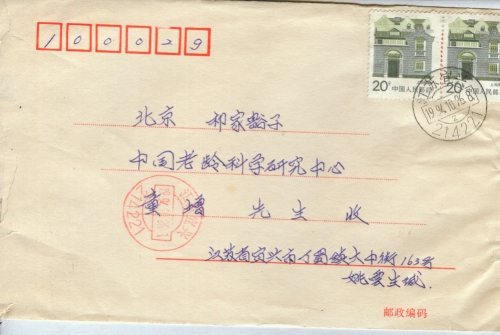 100029
20分 中国人民邮政
20分
江苏宜兴
1994.10.26.8
214221
北京 祁家豁子
中国老龄科学研究中心
童增 先生 收
江苏宜兴
214221
江苏省宜兴市丁蜀镇大中街163号
邮政编码